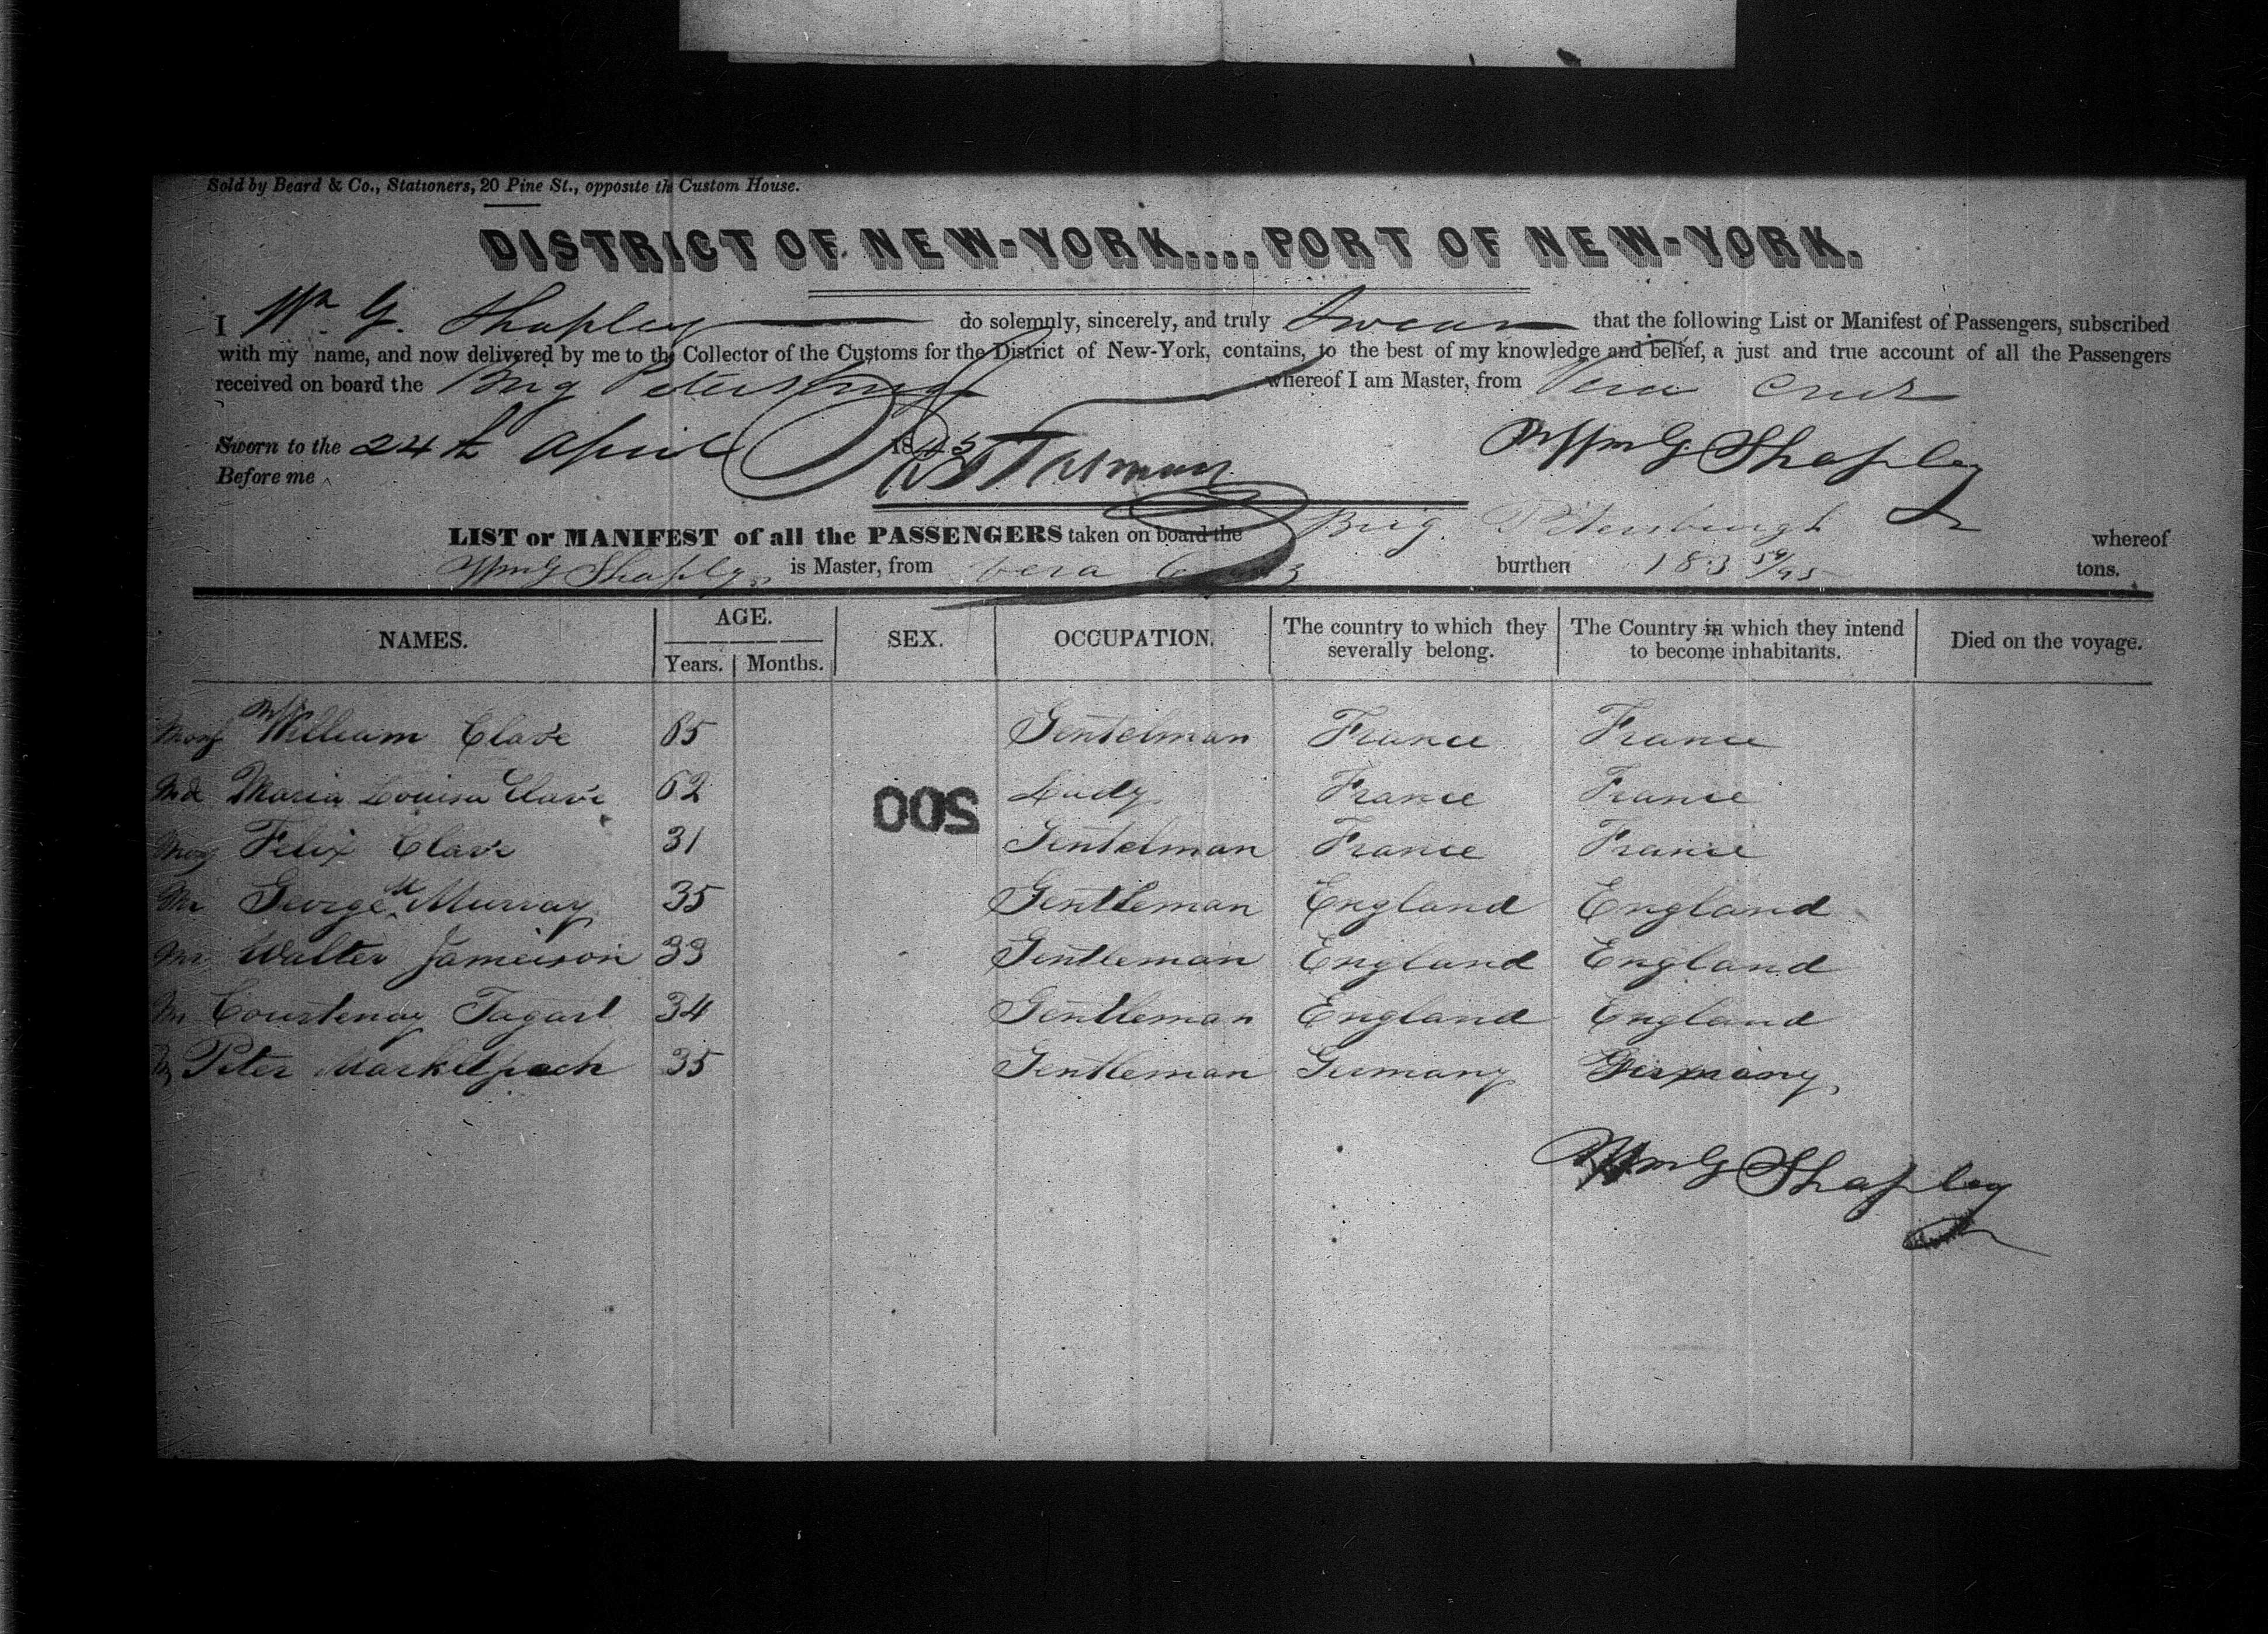 Sold by Beard & Co., Stationers, 20 Pine St., opposite th Custom House.
DISTRICT OF NEW-YORK....PORT OF NEW-YORK.
I Wm G. Shapley do solemnly, sincerely, and truly Swear that the following List or Manifest of Passengers, subscribed
with my name, and now delivered by me to the Collector of the Customs for the District of New-York, contains, to the best of my knowledge and belief, a just and true account of all the Passengers
received on board the Brig Petersburg whereof I am Master, from Vera Cruz
Sworn to the 24th April 1845 Wm G Shapley
Before me
LIST or MANIFEST of all the PASSENGERS taken on board the Brig Petersburgh whereof
Wm G Shapley is Master, from Vera Cruz burthen 183 54/95 tons.
NAMES. AGE. Years. Months. SEX. OCCUPATION. The country to which they severally belong. The Country in which they intend to become inhabitants. Died on the voyage.
William Clavé 65 Gentelman France France
Md Maria Louisa Clavé 62 Lady France France
Felix Clavé 31 Gentelman France France
Mr George Murray 35 Gentleman England England
Mr Walter Jameison 33 Gentleman England England
Mr Courtenay Tagart 34 Gentleman England England
Peter 35 Gentleman Germany Germany
200
Wm G Shapley